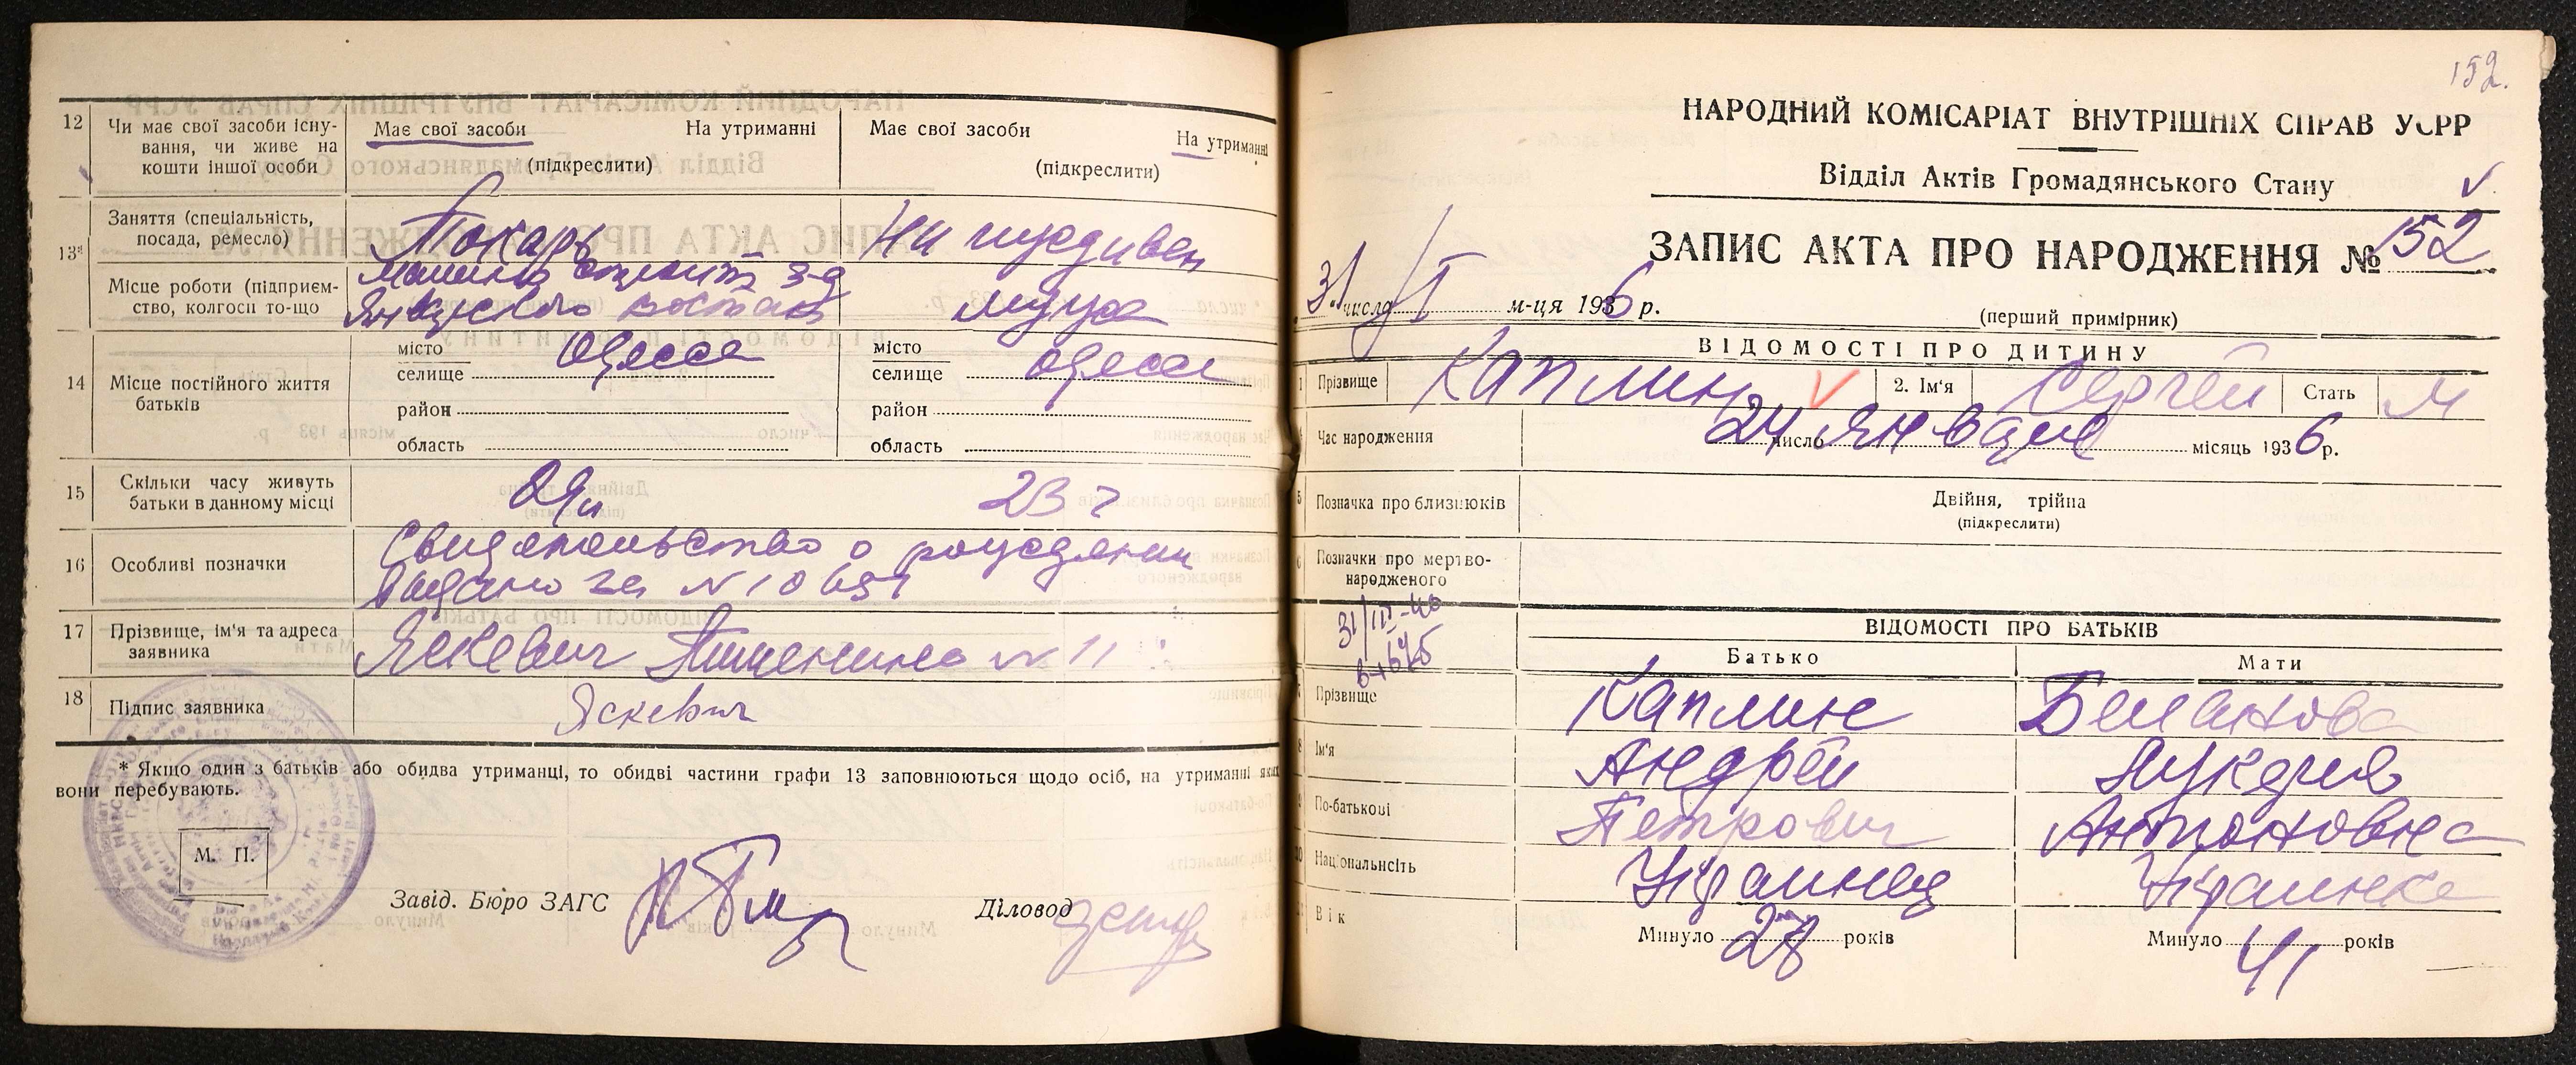 12
Чи має свої засоби існу-
вання, чи живе на
кошти іншої особи
Має свої засоби На утриманні
(підкреслити)
Має свої засоби На утриманні
(підкреслити)
13*
Заняття (спеціальність,
посада, ремесло)
Токарь
На иждивен
Місце роботи (підприєм-
ство, колгосп то-що
з-д
Январского восстан
мужа
14
Місце постійного життя
батьків
місто Одесса
селище
район
область
місто Одесса
селище
район
область
15
Скільки часу живуть
батьки в данному місці
23 г
16
Особливі позначки
Свидетельство о рождении
выдано за N
17
Прізвище, ім'я та адреса
заявника
Яскевич N 11
18
Підпис заявника
Яскевич
* Якщо один з батьків або обидва утриманці, то обидві частини графи 13 заповнюються щодо осіб, на утриманні яких
вони перебувають.
М. П.
Завід. Бюро ЗАГС
Діловод
152.
НАРОДНИЙ КОМІСАРІАТ ВНУТРІШНІХ СПРАВ УСРР
Відділ Актів Громадянського Стану
ЗАПИС АКТА ПРО НАРОДЖЕННЯ № 152
31 числа I м-ця 1936 р.
(перший примірник)
ВІДОМОСТІ ПРО ДИТИНУ
1 Прізвище Каплин 2. Ім'я Сергей Стать М
Час народження 24 число Января місяць 1936 р.
5 Позначка про близнюків
Двійня, трійна
(підкреслити)
6 Позначки про мертво-
народженого
31/III-40
ВІДОМОСТІ ПРО БАТЬКІВ
Батько Мати
Прізвище Каплин
Ім'я Андрей Лукерия
По-батькові Петрович Антоновна
Національність Украинец Украинка
Вік
Минуло 28 років
Минуло 41 років